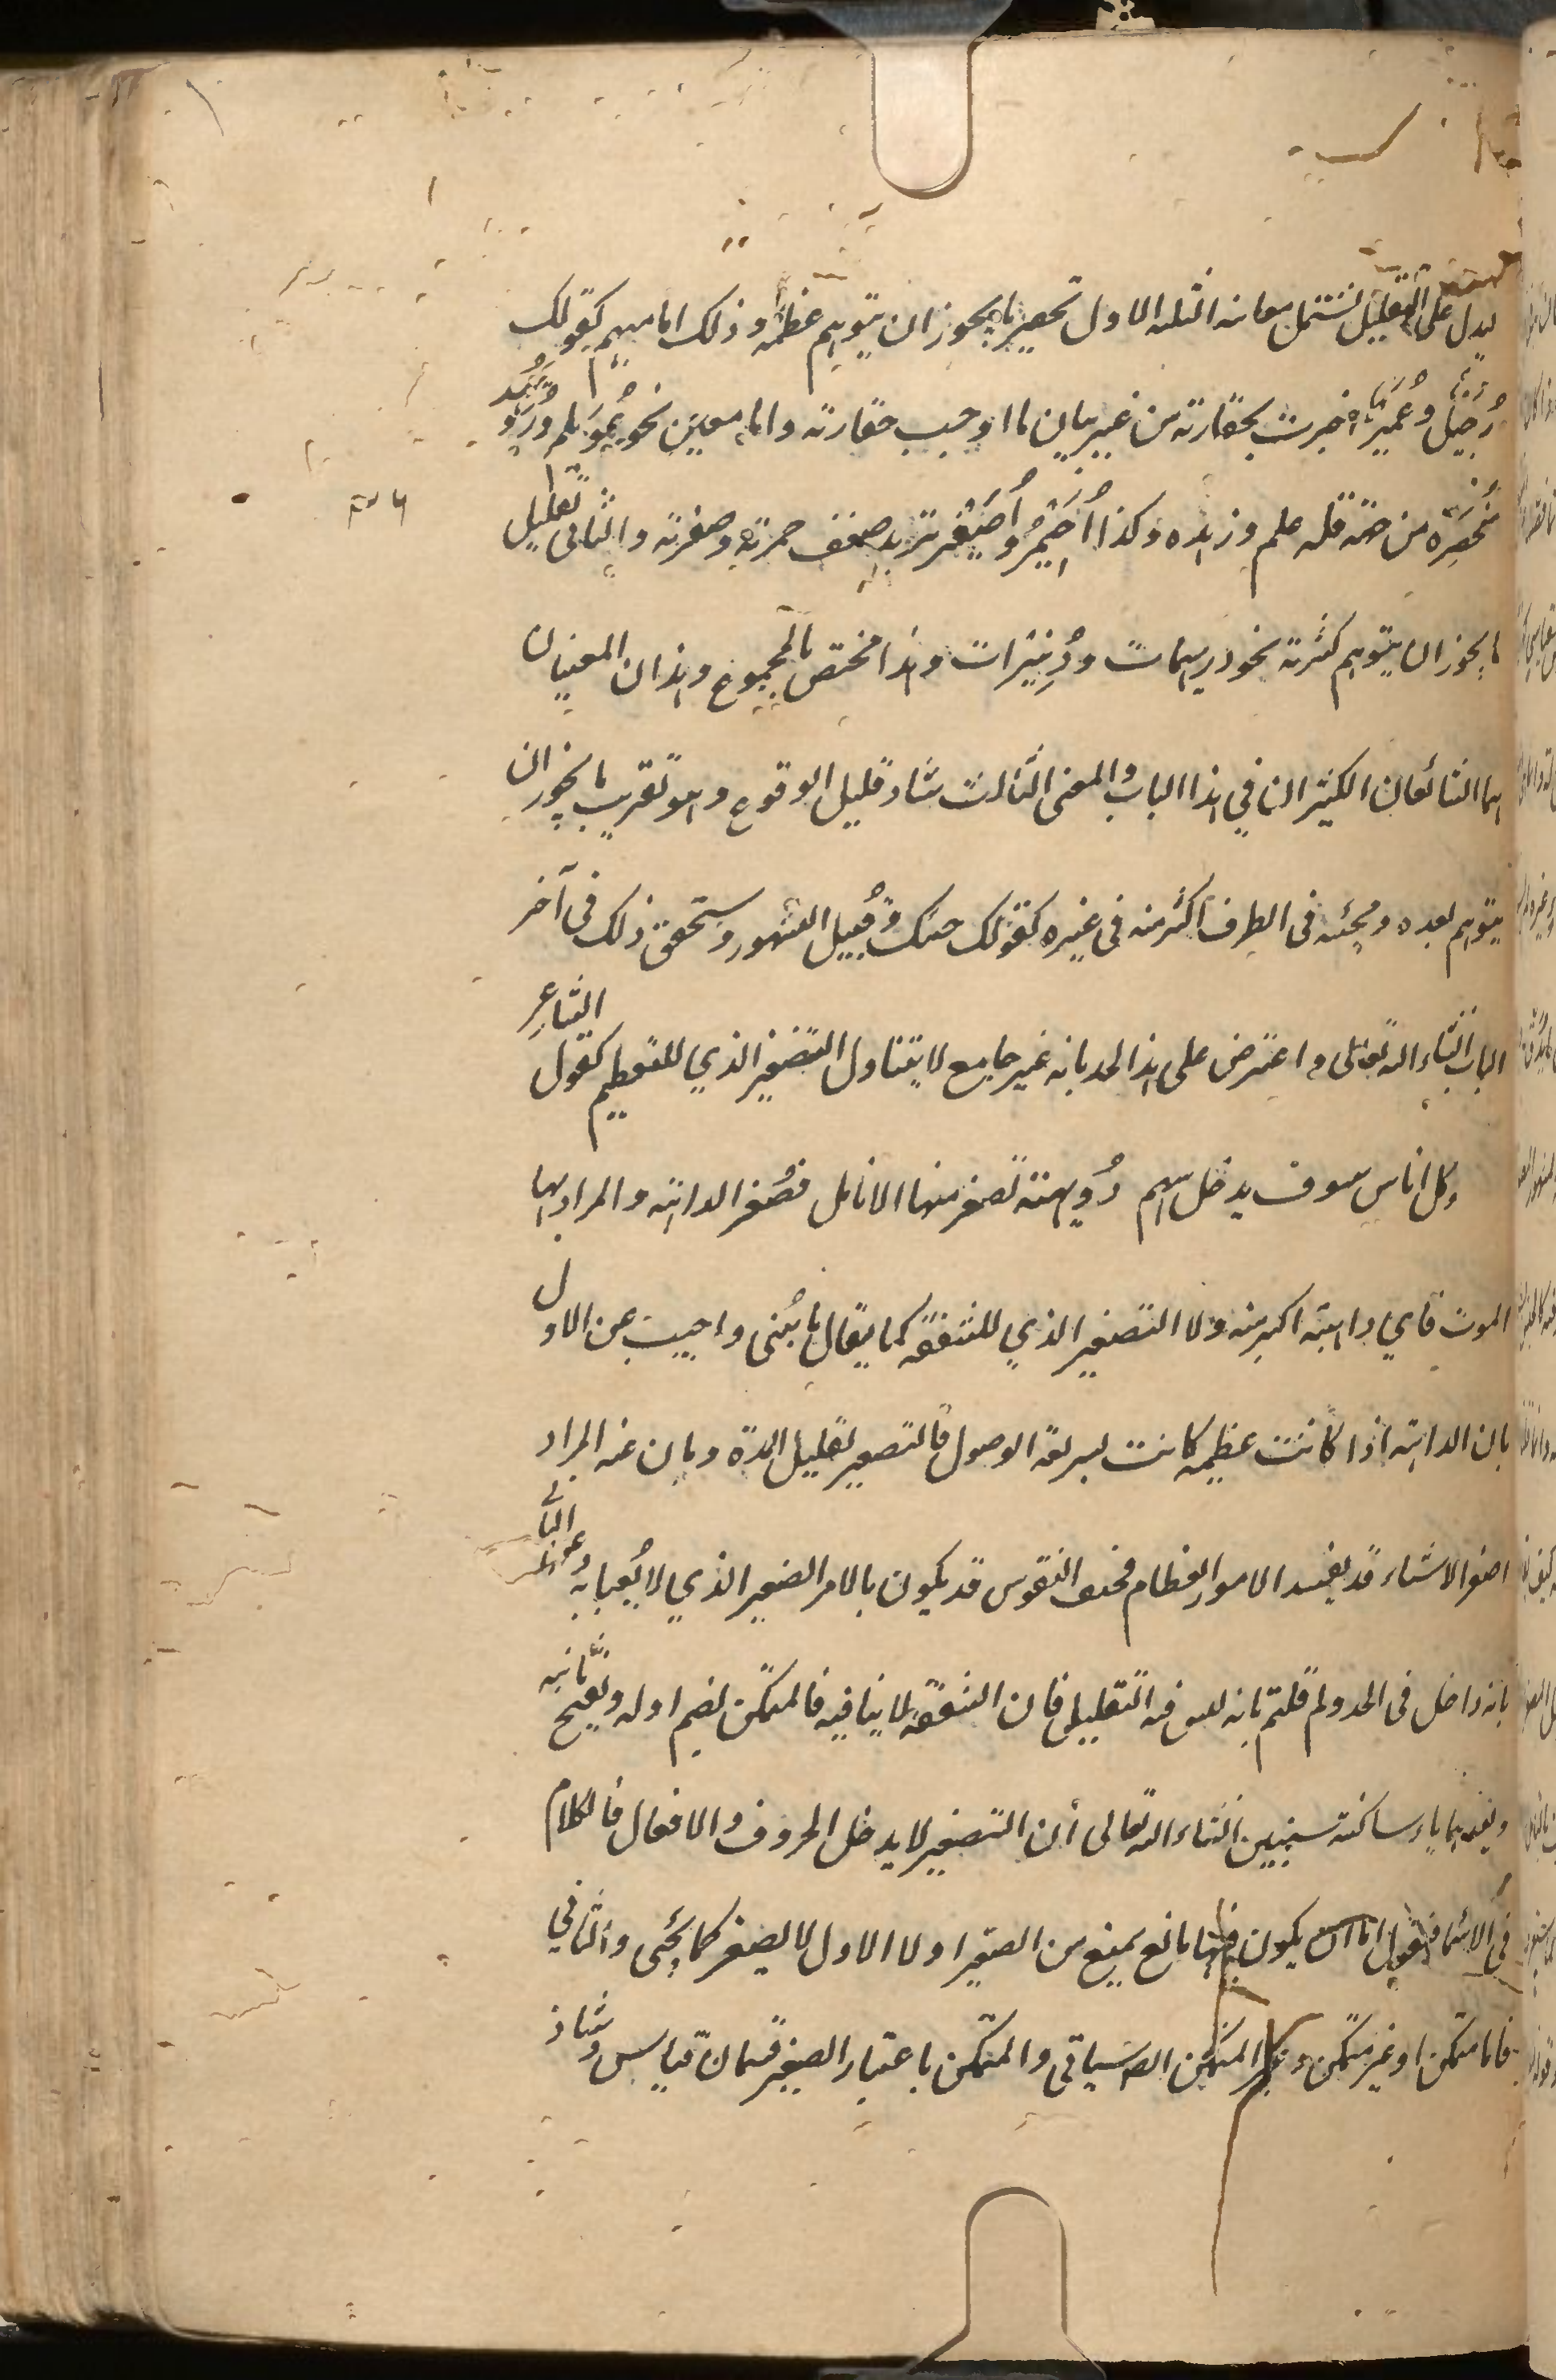 ليدل على التقليل ليشتمل معانيه الثلثة الاول تحقير ما يجوز ان يتوهم عظمه وذلك اما مبهم كقولك
رُجَيل وعُمَير اخبرت بحقارته من غير بيان ما اوجب حقارته واما معين نحو عُوَيلم وزُوَيهد
مُحَقِّرة من جهة قلة علم وزهده وكذا اُحَيمر واُصَيفر تريد ضعف حمرته وصفرته والثاني تقليل
ما يجوز ان يتوهم كثرته نحو دريهمات ودُنينيرات وهذا مختص بالمجموع وهذان المعنيان
هما الشائعان الكثيران في هذا الباب والمعنى الثالث شاذ قليل الوقوع وهو تقريب ما يجوز ان
يتوهم بعده ومجيئه في الظرف اكثر منه في غيره كقولك جئتك قُبيل الشهور وستحقق ذلك في آخر
الباب انشاء الله تعالى واعترض على هذا الحد بانه غير جامع لا يتناول التصغير الذي للتعظيم كقول الشاعر
وكل اناس سوف يدخل بينهم دُويهية تصفر منها الانامل فصُغر الداهية والمراد بها
الموت فاي داهية اكبر منه ولا التصغير الذي للشفقة كما يقال يا بُنى واجيب عن الاول
بان الداهية اذا كانت عظيمة كانت سريعة الوصول فالتصغير لتقليل المدة وبان غنه المراد
اصغر الاشياء قد يفسد الامور العظام فحتف النفوس قد يكون بالامر الصغير الذي لا يُعبا به وعن الثاني
بانه داخل في الحد ولم قلتم بانه ليس فيه التقليل فان الشفقة لا ينافيه فالمتمكن يضم اوله ويفتح ثانيه
وبعدهما ياء ساكنة سنبين انشاء الله تعالى أن التصغير لا يدخل الحروف والافعال فالكلام
في الاسماء فنقول اما ان يكون فيها مانع يمنع من التصغير اولا الاول لا يصغر كما يجئ والثاني
فاما متمكن او غير متمكن وغير المتمكن سياتي والمتمكن باعتبار الصغير قسمان قياس وشاذ